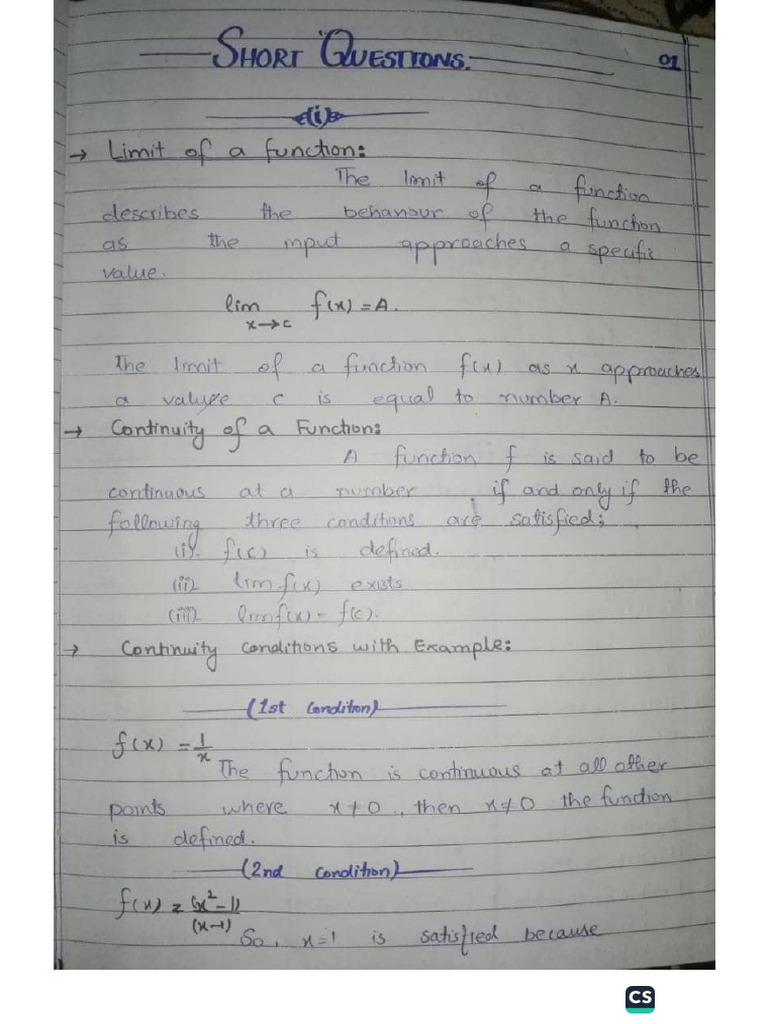 SHORT QUESTIONS.
01
(i)
→ Limit of a function:
The limit of a function
describes the behaviour of the function
as the input approaches a specific
value.
lim f(x) = A.
x→c
The limit of a function f(x) as x approaches
a value c is equal to number A.
→ Continuity of a Function:
A function f is said to be
continuous at a number , if and only if the
following three conditions are satisfied;
(i). f(c) is defined.
(ii) lim f(x) exists
(iii) lim f(x) = f(c).
→ Continuity conditions with Example:
(1st Condition)
f(x) = 1/x
The function is continuous at all other
points where x≠0, then x≠0 the function
is defined.
(2nd Condition)
f(x) = (x²-1)
(x-1)
So, x=1 is satisfied because
CS